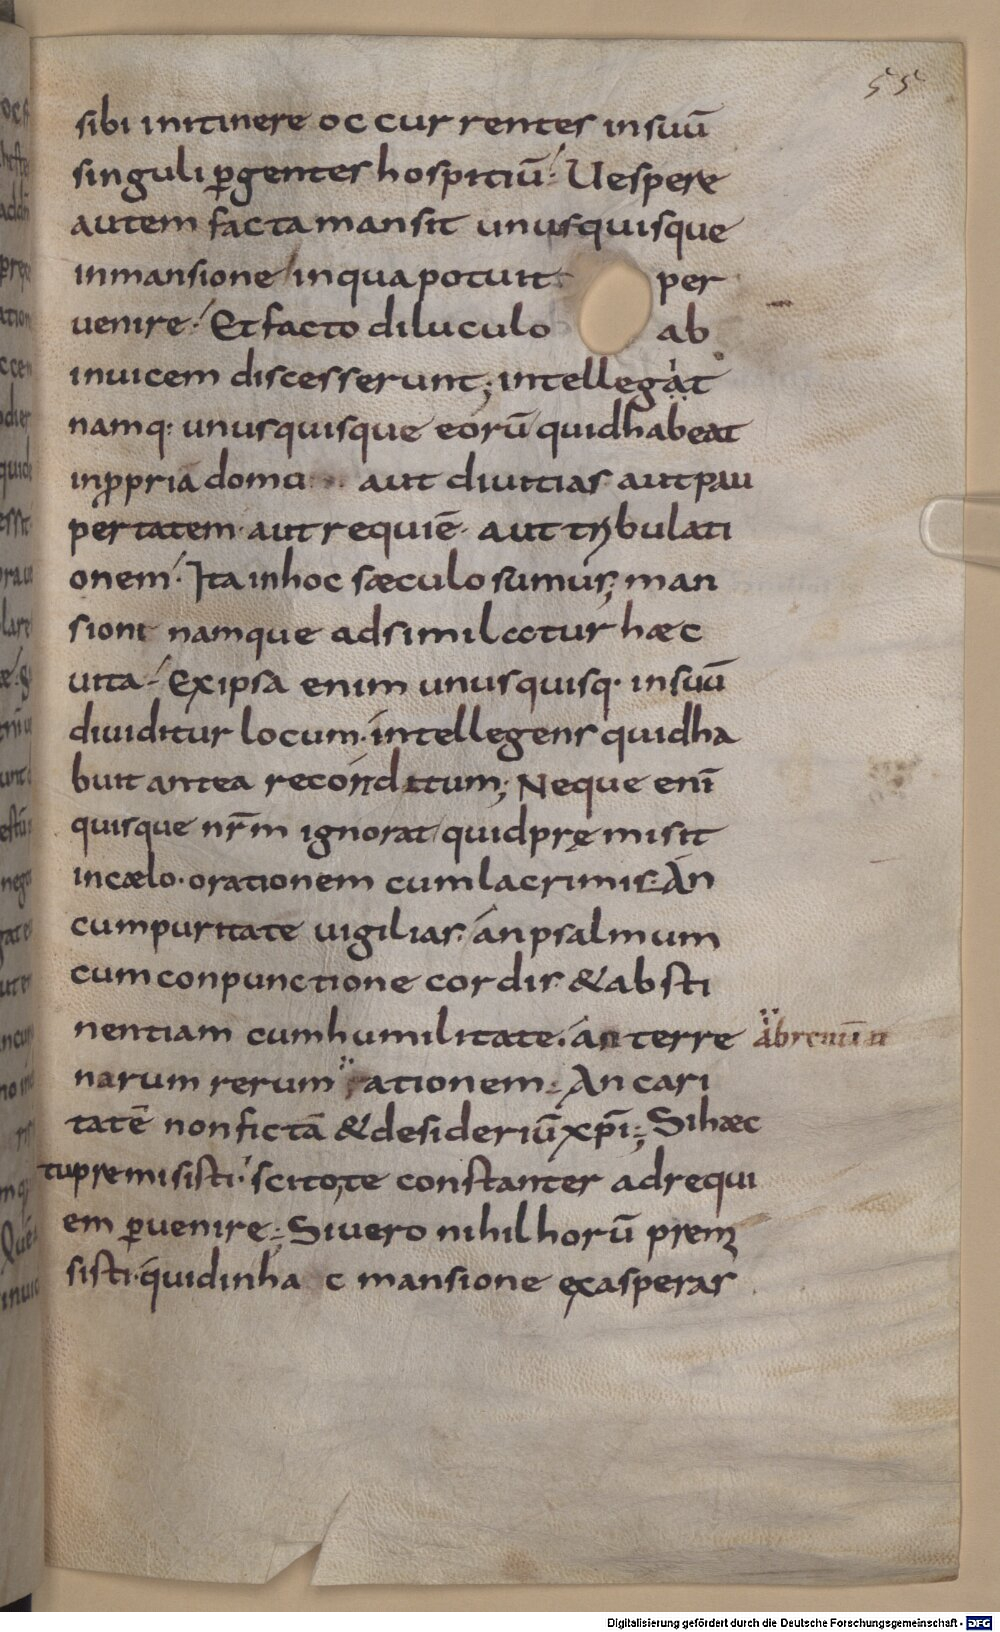 55
sibi initinere occurrentes insuū
singuli ꝑgentes hospitiū: Uespere
autem facta mansit unusquisque
inmansione inquapotuit per
uenire. Et facto diluculo ab
inuicem discesserunt; intellegat
namq: unusquisque eorū quidhabeat
inꝓpria domo aut diuitias aut pau
pertatem. aut requiē. aut tribulati
onem. Ita inhoc sæculo sumus; man
sioni namque adsimilatur hæc
uita. Ex ipsa enim unusquisq. insuū
diuiditur locum. intellegens quidha
buit antea reconditum; Neque enī
quisque nr̄m ignorat quidpręmisit
incælo. orationem cumlacrimis. An
cumpuritate uigilias. an psalmum
cumconpunctione cordis & absti
nentiam cumhumilitate. an terre äbrenūti
narum rerum ationem. An cari
tatē nonfictā & desideriū xp̄i; Sihæc
tupremisisti. scitote constanter adrequi
em ꝑuenire; Siuero nihil horū premi
sisti. quidinha c mansione exasperas
Digitalisierung gefördert durch die Deutsche Forschungsgemeinschaft - DFG